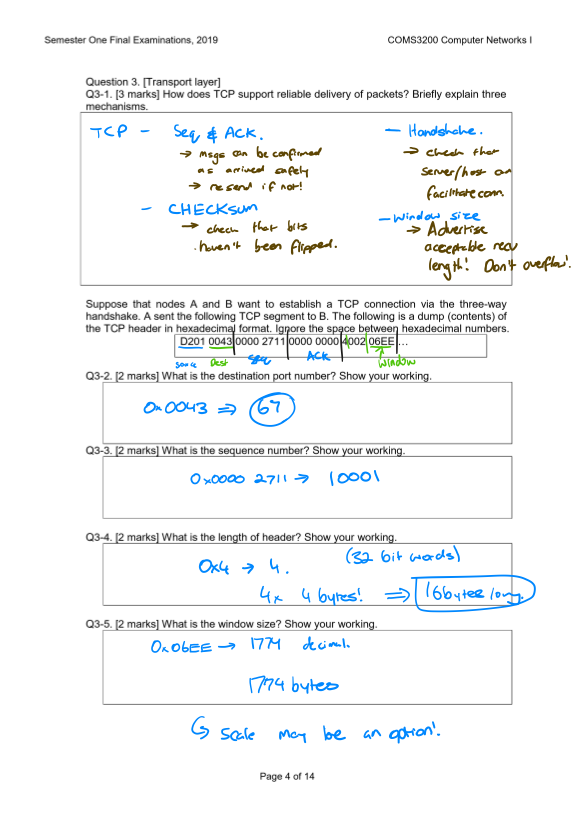 Semester One Final Examinations, 2019 COMS3200 Computer Networks I
Question 3. [Transport layer]
Q3-1. [3 marks] How does TCP support reliable delivery of packets? Briefly explain three
mechanisms.
TCP - Seq & ACK.
→ msgs can be confirmed
as arrived safely
→ resend if not!
- CHECKSUM
→ check that bits
haven't been flipped.
- Handshake.
→ check that
server/host can
facilitate com.
- Window size
→ Advertise
acceptable recv
length! Don't overflow!
Suppose that nodes A and B want to establish a TCP connection via the three-way
handshake. A sent the following TCP segment to B. The following is a dump (contents) of
the TCP header in hexadecimal format. Ignore the space between hexadecimal numbers.
D201 0043 0000 2711 0000 0000 4002 06EE ...
source Dest seq ACK window
Q3-2. [2 marks] What is the destination port number? Show your working.
0x0043 ⇒ 67
Q3-3. [2 marks] What is the sequence number? Show your working.
0x0000 2711 → 10001
Q3-4. [2 marks] What is the length of header? Show your working.
0x4 → 4. (32 bit words)
4x 4 bytes! ⇒ 16bytes long.
Q3-5. [2 marks] What is the window size? Show your working.
0x06EE → 1774 decimal.
1774 bytes
↳ scale may be an option!
Page 4 of 14